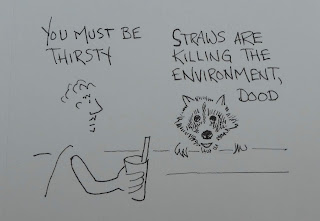 YOU MUST BE
THIRSTY
STRAWS ARE
KILLING THE
ENVIRONMENT,
DOOD